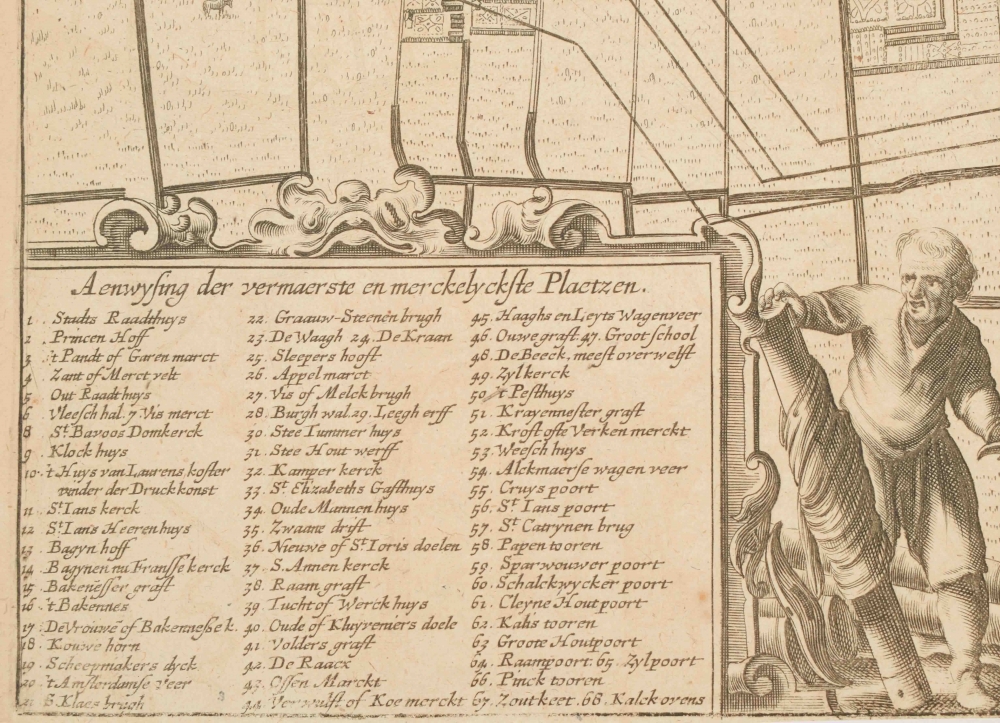 Aenwysing der vermaerste en merckelyckste Plaetzen.
1. Stadts Raadthuys
2 Princen Hoff
3 't Pandt of Garen marct
4 Zant of Merct velt
5 Out Raadthuys
6 Vleesch hal. 7 Vis merct
8 St. Bavoos Domkerck
9 Klock huys
10. 't Huys van Laurens koster
vinder der Druck konst
11 St. Ians kerck
12 St. Ians Heeren huys
13 Bagyn hoff
14 Bagynen nu Franse kerck
15 Bakenesser graft
16 't Bakennes
17. De Vrouwe of Bakennesse k.
18. Kouwe horn
19. Scheepmakers dyck
20 't Amsterdamse Veer
21 S. Klaes brugh
22. Graauw-Steenen brugh
23. De Waagh 24. De Kraan
25. Sleepers hooft
26. Appel marct
27. Vis of Melck brugh
28. Burgh wal. 29. Leegh erff
30. Stee Tummer huys
31. Stee Hout werff
32. Kamper kerck
33. St. Elizabeths Gasthuys
34. Oude Mannen huys
35. Zwaane drift
36. Nieuwe of St. Ioris doelen
37. S. Annen kerck
38. Raam graft
39. Tucht of Werck huys
40. Oude of Kluyveniers doele
41. Volders graft
42. De Raacx
43. Ossen Marckt
44 Verwulft of Koe merckt
45. Haaghs en Leyts Wagenveer
46. Ouwe graft. 47. Groot school
48. De Beeck, meest overwelft
49. Zyl kerck
50. 't Pesthuys
51. Krayennester graft
52. Kroft ofte Verken merckt
53. Weesch huys
54. Alckmaerse wagen veer
55. Cruys poort
56. St. Ians poort
57. St. Catrynen brug
58. Papen tooren
59. Sparwouwer poort
60. Schalckwycker poort
61. Cleyne Hout poort
62. Kalis tooren
63 Groote Houtpoort
64. Raampoort. 65. Zylpoort
66. Pinck tooren
67. Zoutkeet. 68. Kalck ovens